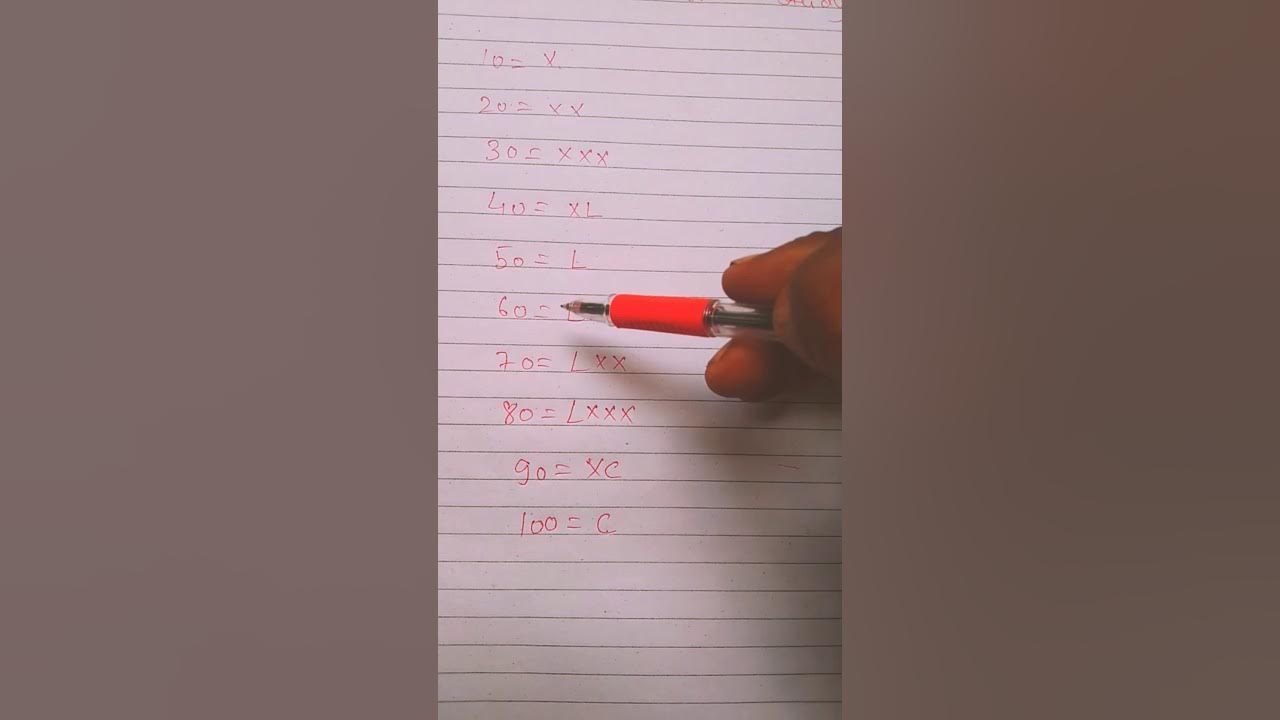 10= X
20= XX
30= XXX
40= XL
50= L
60= L
70= LXX
80= LXXX
90= XC
100= C